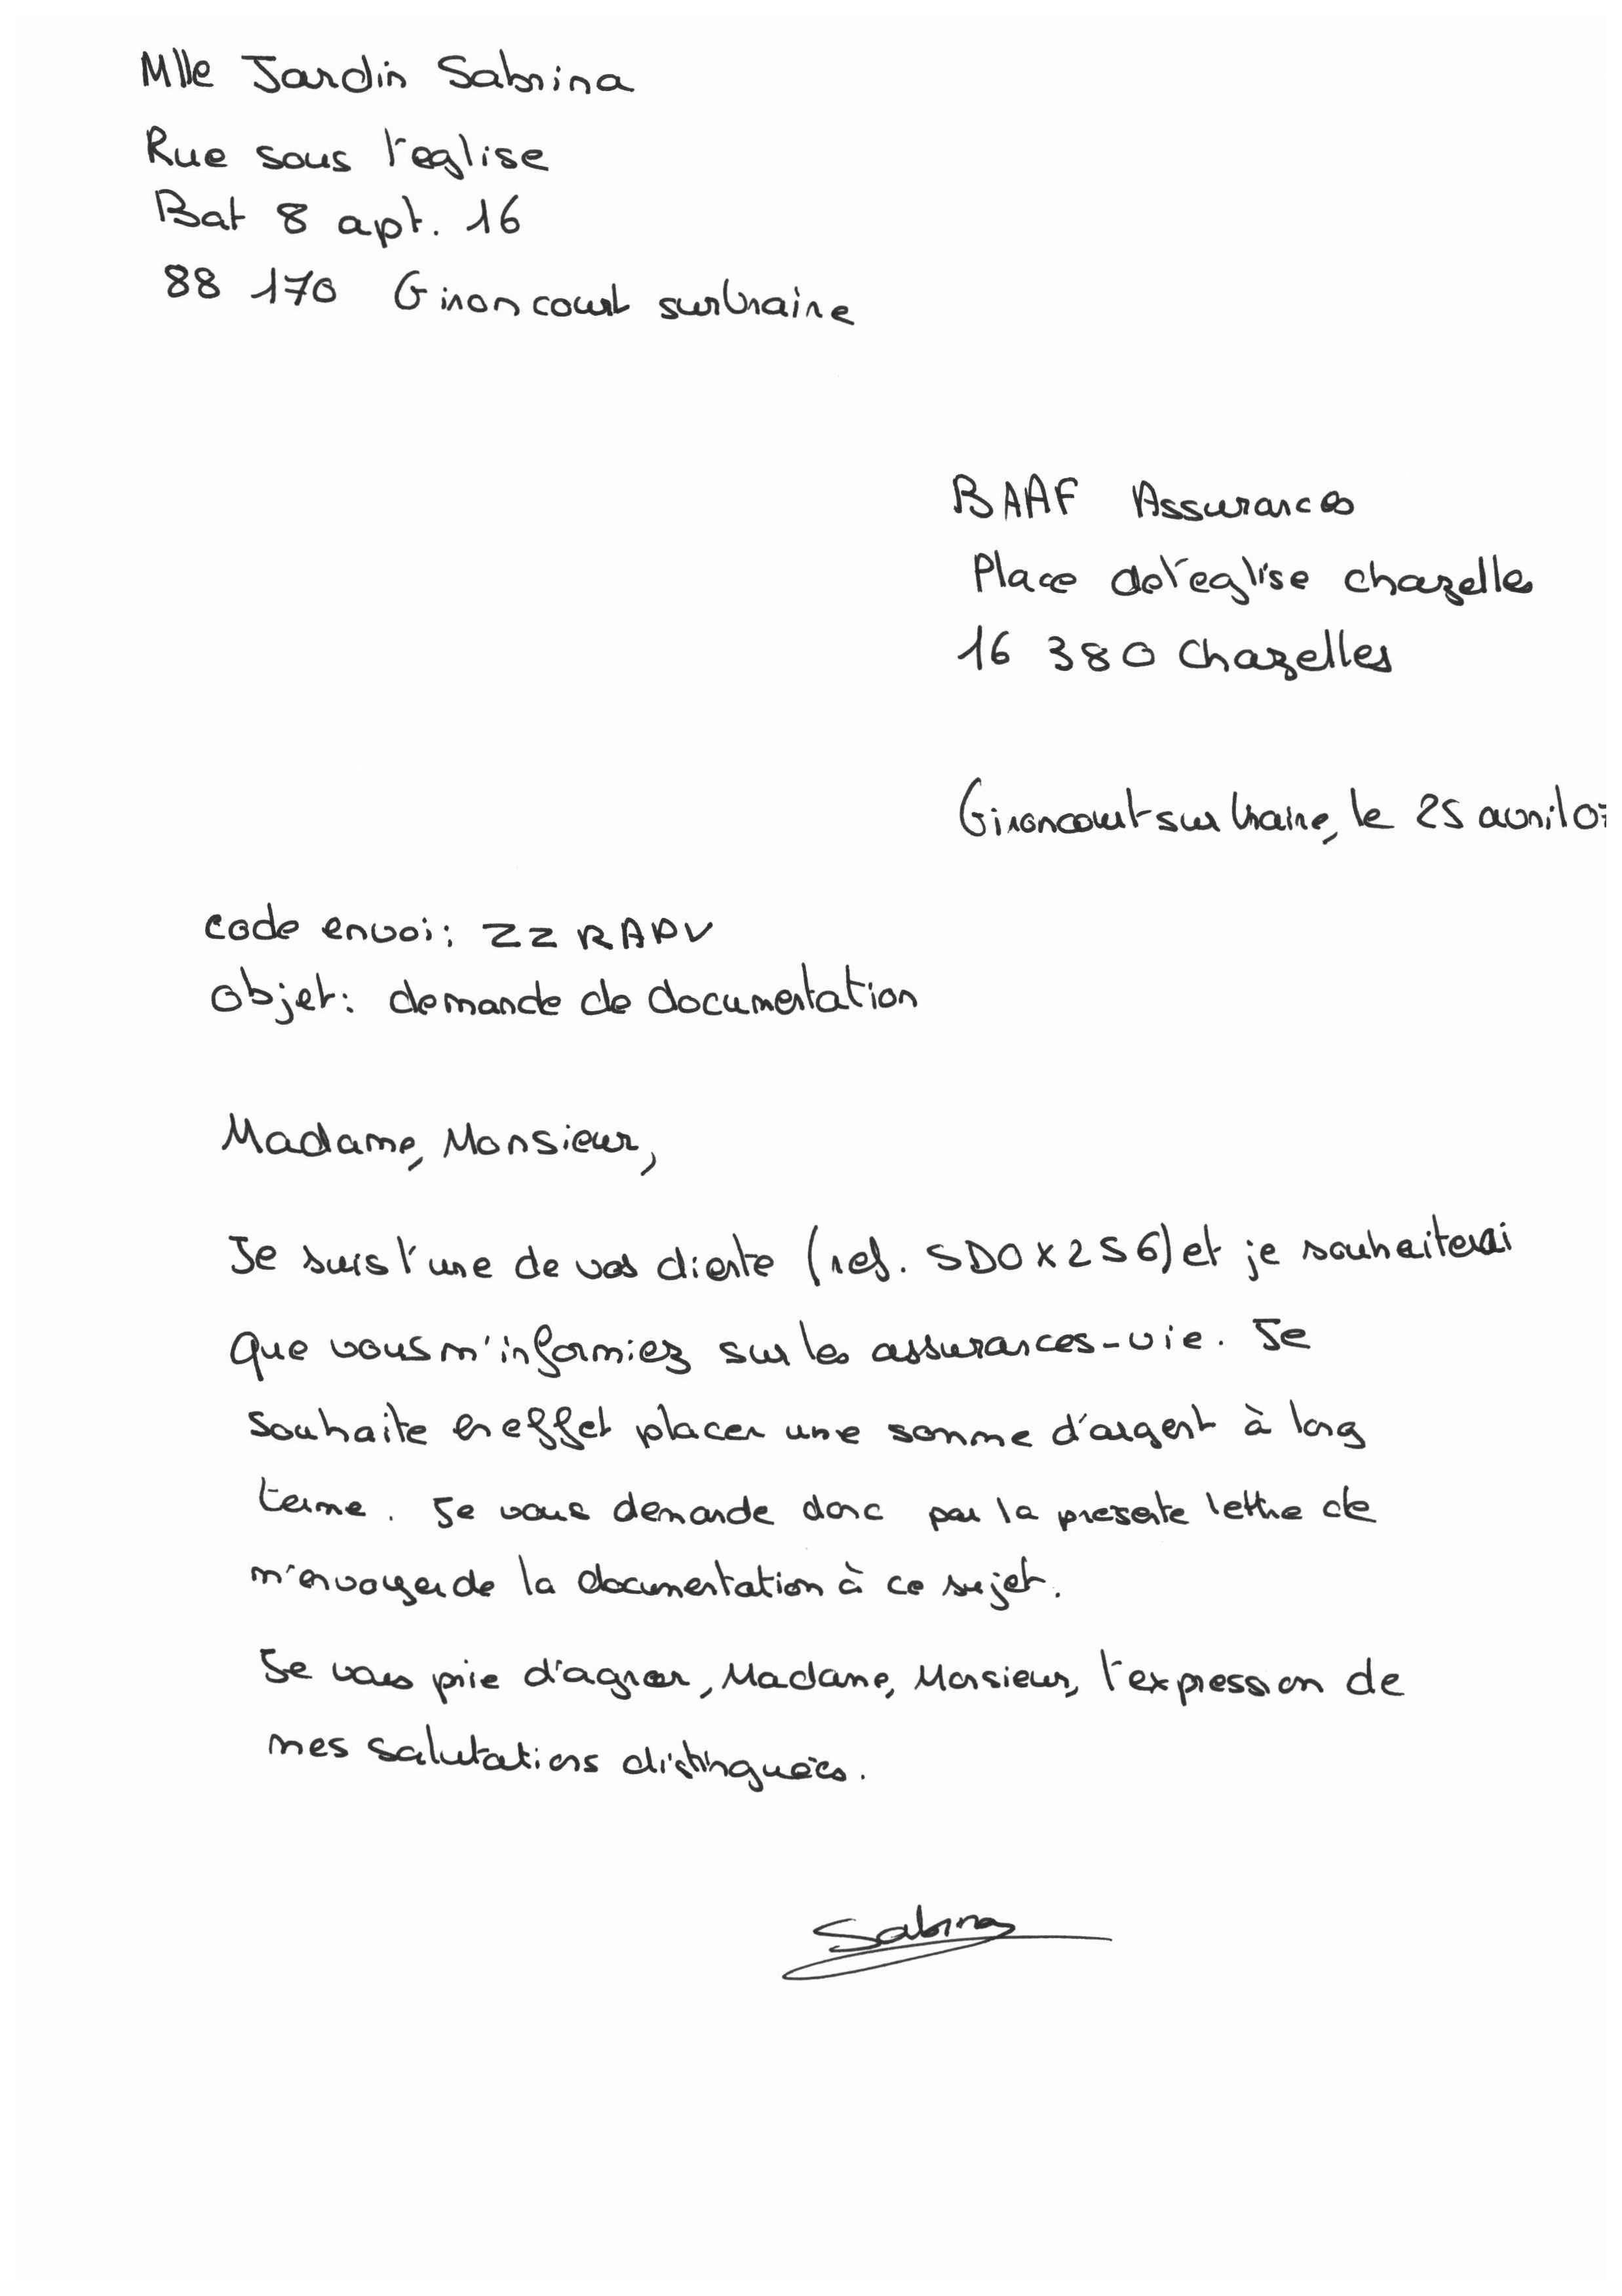 Mlle Jardin Sabrina
Rue sous l'eglise
Bat 8 apt. 16
88 170 Gironcourt sur Vraine
BAAF Assurances
Place de l'eglise chazelles
16 380 Chazelles
Gironcourt sur Vraine, le 25 avril 07
code envoi : ZZRADV
objet : demande de documentation
Madame, Monsieur,
Je suis l'une de vos cliente (ref. SDOX256) et je souhaiterai
que vous m'informiez sur les assurances-vie. Je
souhaite en effet placer une somme d'argent à long
terme. Je vous demande donc par la presente lettre de
m'envoyer de la documentation à ce sujet.
Je vous prie d'agreer, Madame, Monsieur, l'expression de
mes salutations distinguées.
Sabrina